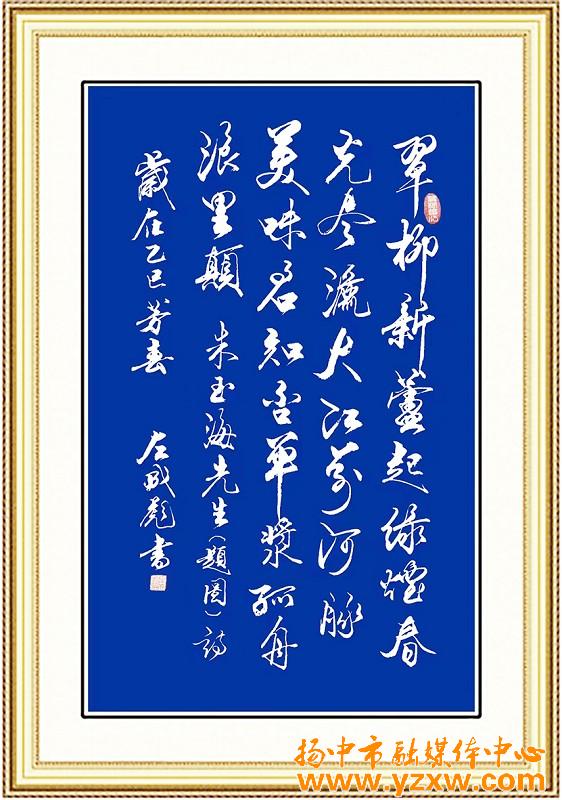 翠柳新蘆起绿煙春
光尽灑大江前河豚
美味君知否单槳孤舟
浪里顛 朱玉海先生(题图)诗
歲在乙巳芳春 左成彪书
扬中市融媒体中心
www.yzxw.com